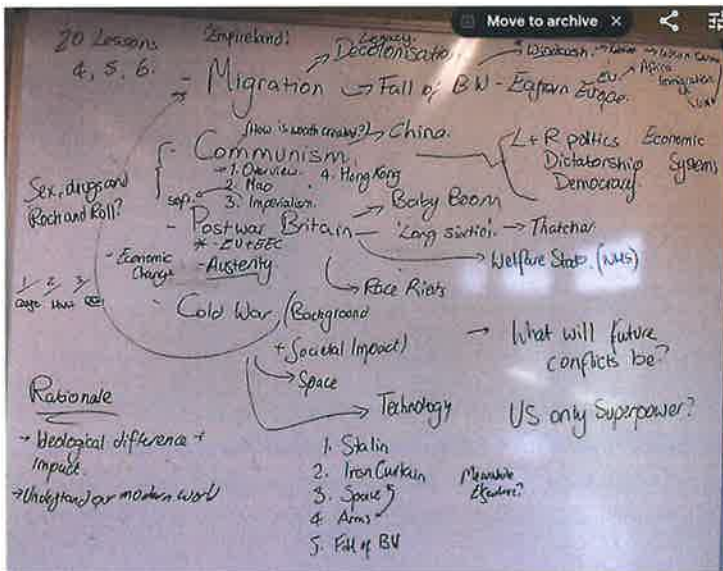 Move to archive ×
20 Lessons
4, 5, 6.
'Empireland'
Legacy.
Decolonisatio
Windrush.
- Migration → Fall of BW - Eastern Europe.
EU
Africa
Immigration
(How is wealth created?) → China.
- Communism.
1. Overview 4. Hong Kong
2. Mao
3. Imperialism.
sep.
L + R politics Economic
Dictatorship Systems
Democracy
Sex, drugs and
Rock and Roll?
→ Baby Boom
- Postwar Britain - 'Long sixties'. → Thatcher
* - EU + EEC
→ Welfare State. (NHS)
- Economic
Change
- Austerity
→ Race Riots
1 2 3
- Cold War (Background
+ Societal Impact)
→ Space
→ What will future
conflicts be?
→ Technology
US only Superpower?
Rationale
→ Ideological difference +
Impact.
→ Understand our modern world
1. Stalin
2. Iron Curtain
3. Space
4. Arms
5. Fall of BW
Meanwhile
Elsewhere?